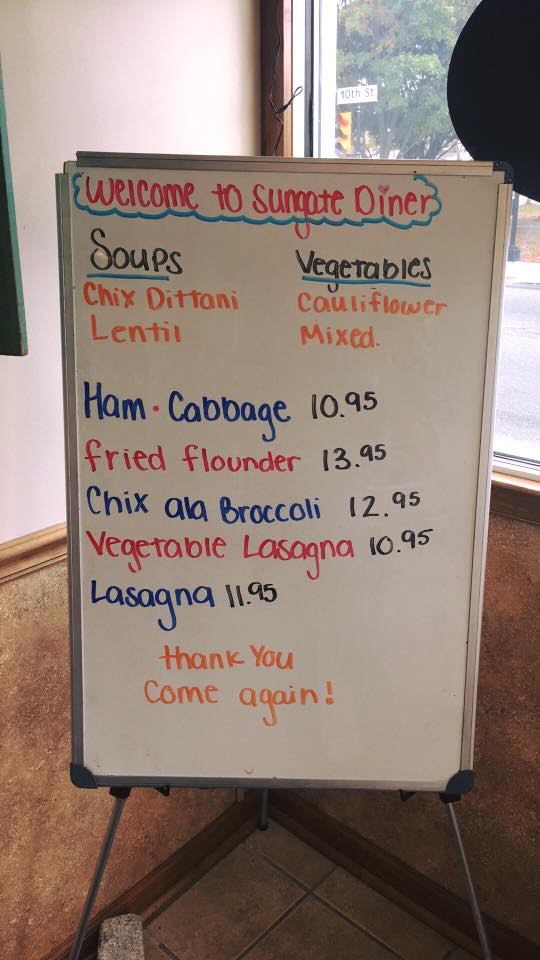 10th St
Welcome to Sungate Diner
Soups
Chix Dittani
Lentil
Vegetables
Cauliflower
Mixed.
Ham • Cabbage 10.95
fried flounder 13.95
Chix ala Broccoli 12.95
Vegetable Lasagna 10.95
Lasagna 11.95
thank You
Come again!